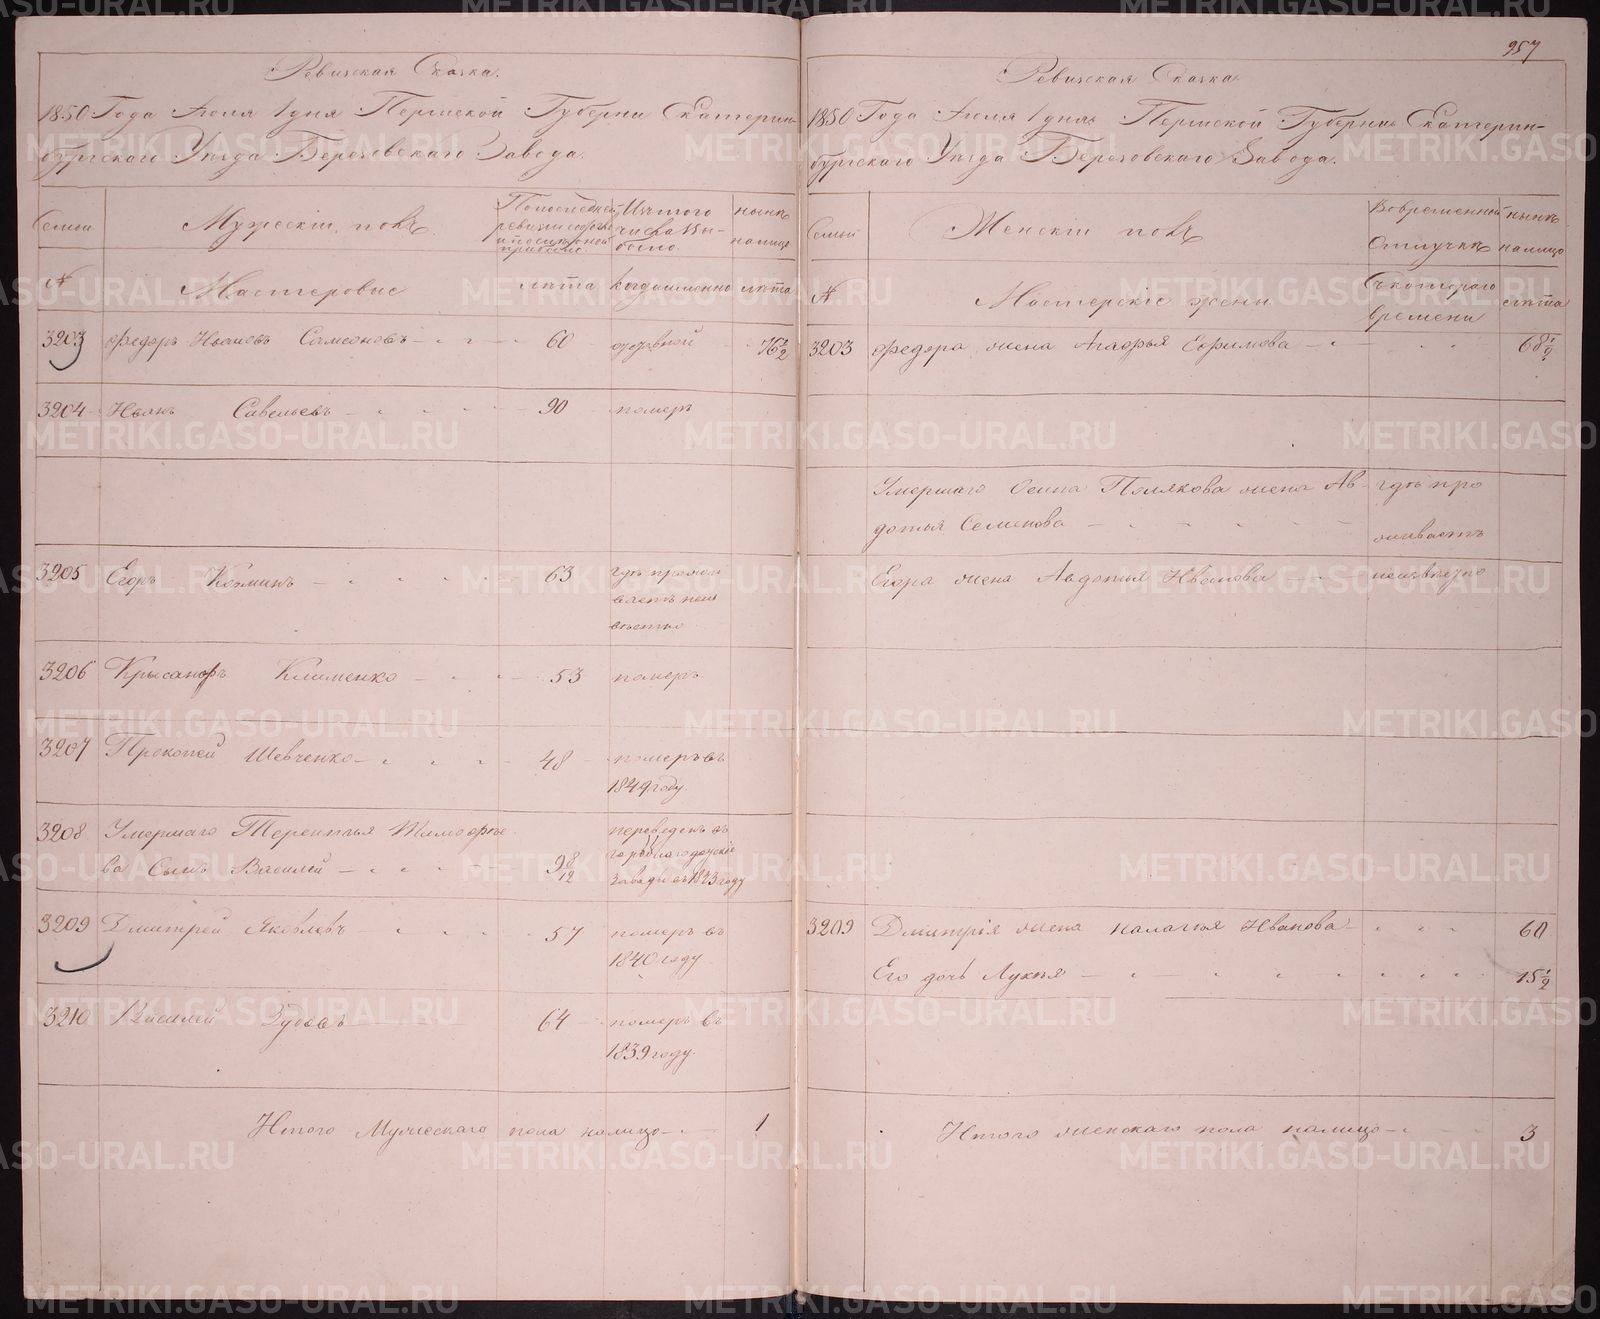 957
Ревизская Сказка.
1850 Года Июля 1 дня Пермской Губернии Екатерин-
бургскаго Уезда Березовскаго Завода.
Семьи
Мужескій полъ.
Изъ того числа выбыло.
нынѣ налицо
№
Мастеровые
лѣта
когда именно
лѣта
3203 Федоръ Ивановъ Самсоновъ 60 76 1/2
3204 Иванъ Савельевъ 90 померъ
3205 Егоръ Козминъ 63 гдѣ прожи
ваетъ неиз
вѣстно
3206 Крысанфъ Клименко 53 померъ
3207 Прокопей Шевченко 48 померъ въ
1849 году.
3208 Умершаго Терентья Тимофѣе
ва Сынъ Василей 9 8/12 переведенъ въ
горноблагодатскіе
заводы въ 1833 году
3209 Дмитрей Яковлевъ 57 померъ въ
1840 году.
3210 Василей Зубовъ 64 померъ въ
1839 году.
Итого Мужескаго пола налицо 1
Ревизская Сказка
1850 Года Июля 1 дня Пермской Губерніи Екатерин-
бургскаго Уезда Березовскаго Завода.
Семьи
Женскій полъ
Во временной отлучкѣ
нынѣ налицо
№
Мастерскіе жены
Съ котораго времени
лѣта
3203 Федора жена Агафья Ефимова 68 1/2
Умершаго Осипа Полякова жена Ав- гдѣ про
дотья Семенова живаетъ
Егора жена Авдотья Иванова неизвѣстно
3209 Дмитрія жена Палагья Иванова 60
Его дочь Лукья 15 1/2
Итого женскаго пола налицо 3
METRIKI.GASO-URAL.RU